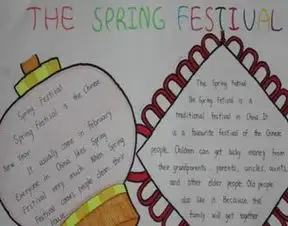 THE SPRING FESTIVAL
Spring Festival
Spring Festival is the Chinese
New Year
It usually come in february
Everyone in China like Spring
Festival very much When Spring
Festival comes people clean their
house
The Spring Festival
The Spring Festival is a
traditional festival in China It
is a favourite festival of the Chinese
people. Children can get lucky money from
their grandparents, parents, uncles, aunts,
and other elder people. Old people
also like it Because this
family will get together